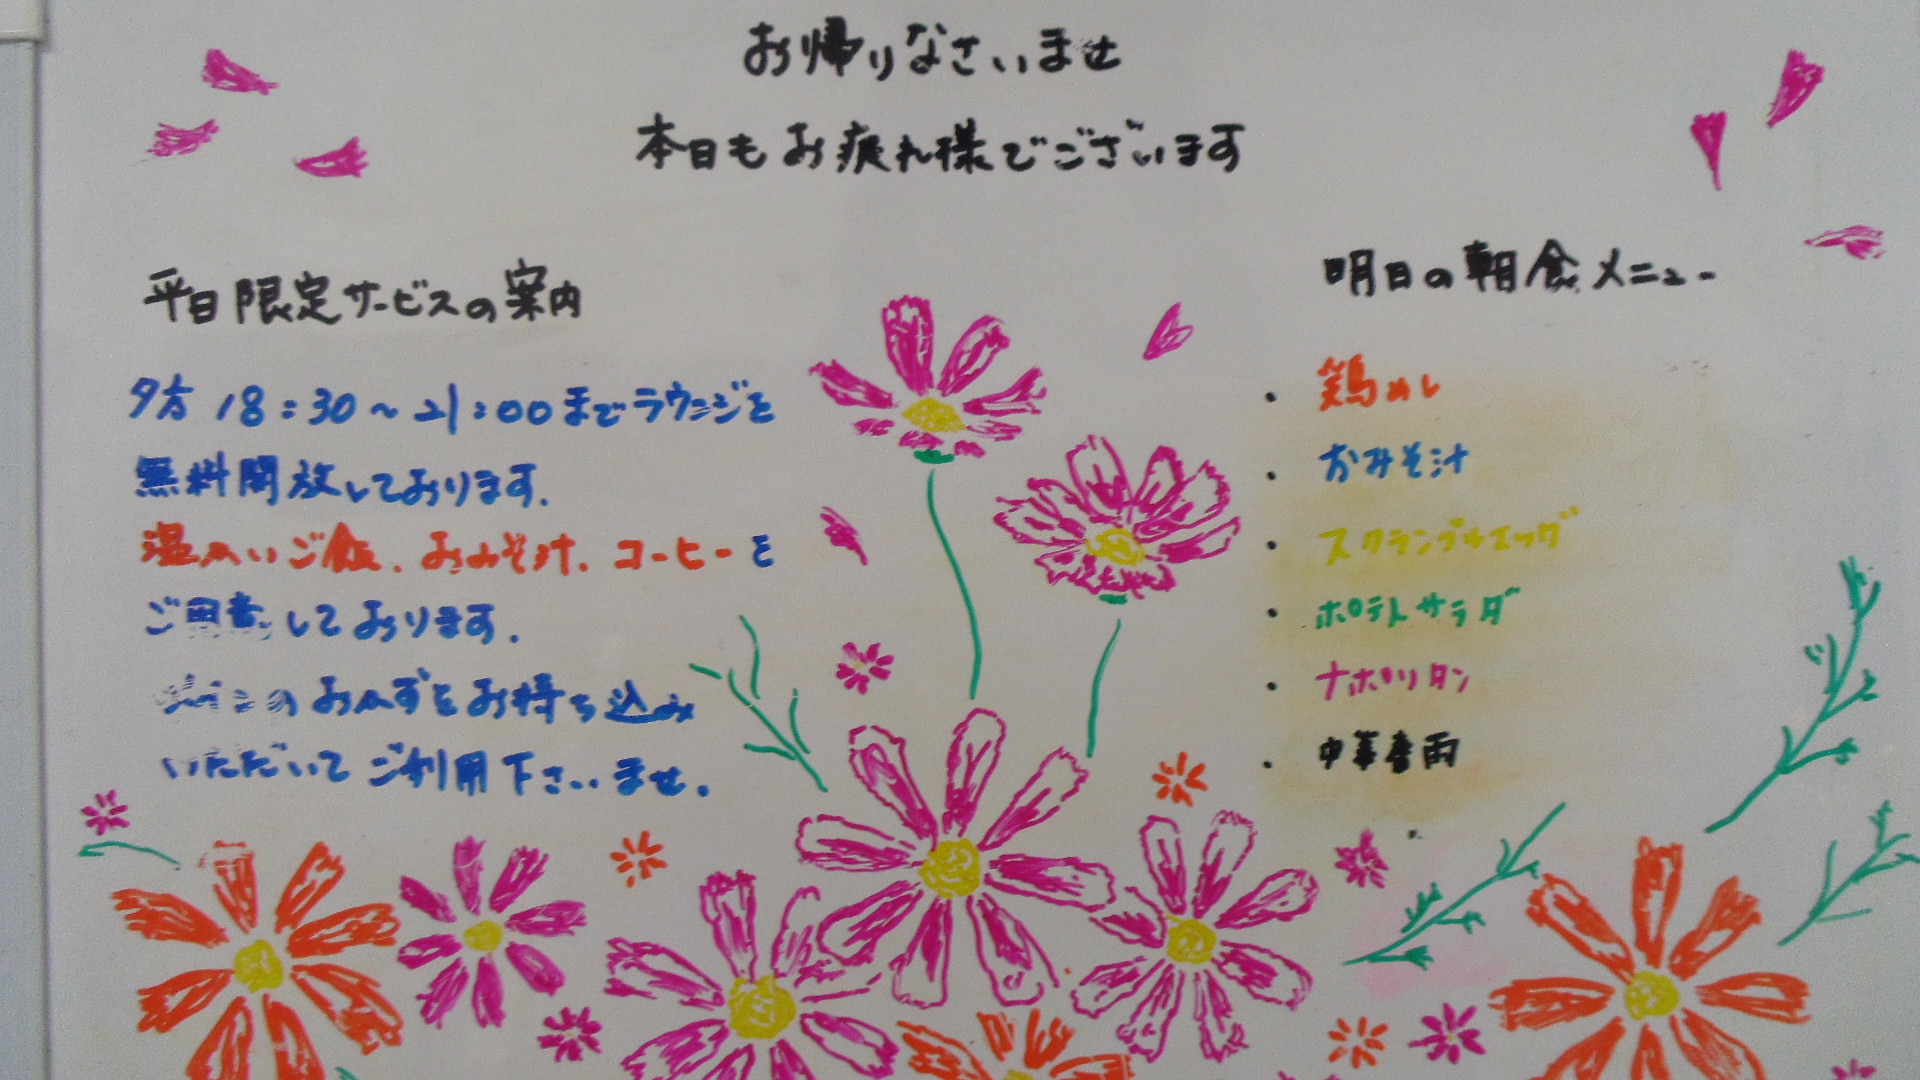 お帰りなさいませ
本日もお疲れ様でございます
平日限定サービスの案内
夕方 18:30～21:00までラウンジを
無料開放しております.
温かいご飯.おみそ汁.コーヒーを
ご用意しております.
のおかずをお持ち込み
いただいてご利用下さいませ.
明日の朝食メニュー
・鶏めし
・おみそ汁
・スクランブルエッグ
・ポテトサラダ
・ナポリタン
・中華春雨